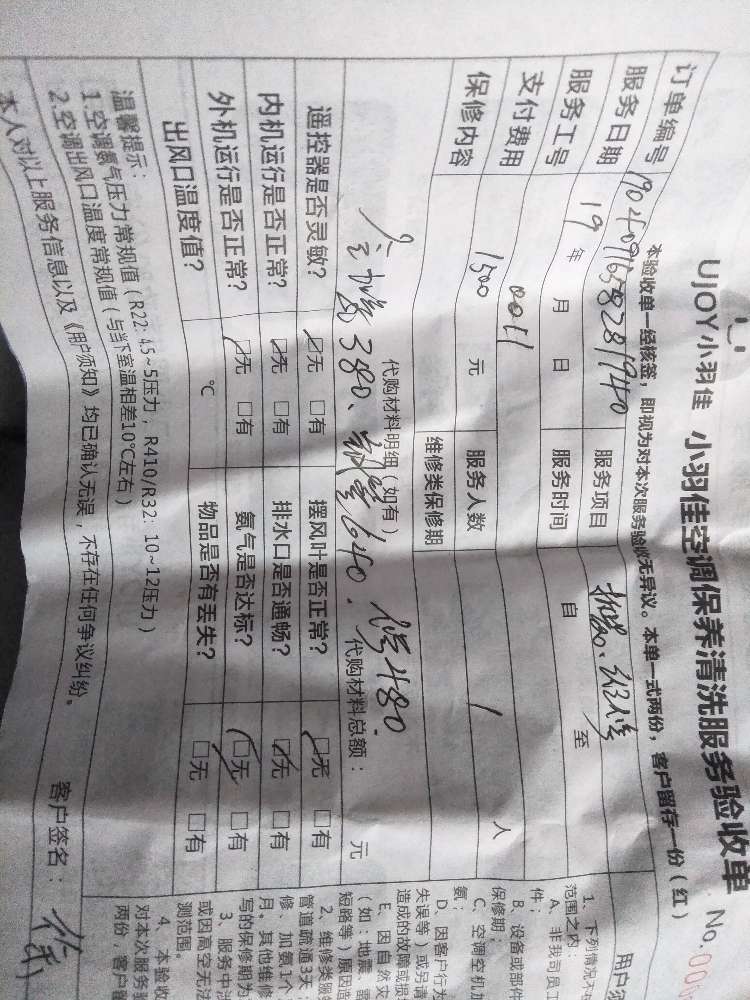 UJOY小羽佳 小羽佳空调保养清洗服务验收单 No.
本验收单一经核签，即视为对本次服务验收无异议。本单一式两份，客户留存一份（红）
订单编号 服务项目
服务日期 19 年 月 日 服务时间 自 至
服务工号 0011
支付费用 1500 元 服务人数 1 人
保修内容 维修类保修期
代购材料明细（如有） 代购材料总额： 元
380、 640. 480.
遥控器是否灵敏？ ☑无 □有 摆风叶是否正常？ ☑无 □有
内机运行是否正常？ ☑无 □有 排水口是否通畅？ ☑无 □有
外机运行是否正常？ ☑无 □有 氨气是否达标？ ☑无 □有
出风口温度值？ ℃ 物品是否有丢失？ □无 □有
温馨提示：
1.空调氨气压力常规值（R22: 4.5~5压力，R410/R32: 10~12压力）
2.空调出风口温度常规值（与当下室温相差10℃左右）
本人对以上服务信息以及《用户须知》均已确认无误，不存在任何争议纠纷。 客户签名：
用户须
1、下列情况不
范围之内：
A、非我司员工
件；
B、设备或部件
保修期；
C、空调空机加
氨；
D、因客户行为
失误等）或另请
造成的故障或损
E、因自然灾
（如：地震、雷
短路等）原因造
2、维修类服
管道疏通3天；
修、加氨1个
月。其他维修
写的保修期为
3、服务中涉
或因高空无法
测范围。
4、本验收
对本次服务验
两份，客户留